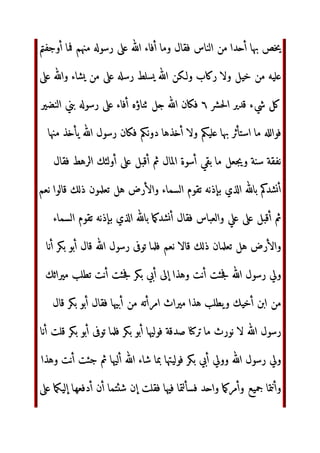 يخص بها أحدا من الناس فقال وما أفاء الله على رسوله منهم فما أوجفتم
عليه من خيل ولا ركاب ولكن الله يسلط رسله على من يشاء والله على
كل شيء قدير الحشر ٦ فكان الله جل ثناؤه أفاء على رسوله بني النضير
فوالله ما استأثر بها عليكم ولا أخذها دونكم فكان رسول الله يأخذ منها
نفقة سنة ويجعل ما بقي أسوة المال ثم أقبل على أولئك الرهط فقال
أنشدكم بالله الذي بإذنه تقوم السماء والأرض هل تعلمون ذلك قالوا نعم
ثم أقبل على علي والعباس فقال أنشدكما بالله الذي بإذنه تقوم السماء
والأرض هل تعلمان ذلك قالا نعم فلما توفى رسول الله قال أبو بكر أنا
ولي رسول الله فجئت أنت وهذا إلى أبي بكر فجئت أنت تطلب ميراثك
من ابن أخيك ويطلب هذا ميراث امرأته من أبيها فقال أبو بكر قال
رسول الله لا نورث ما تركنا صدقة فوليها أبو بكر فلما توفى أبو بكر قلت أنا
ولي رسول الله وولي أبي بكر فوليتها بما شاء الله أليها ثم جئت أنت وهذا
وأنتما جميع وأمركما واحد فسألتما فيها فقلت إن شئتما أن أدفعها إليكما على